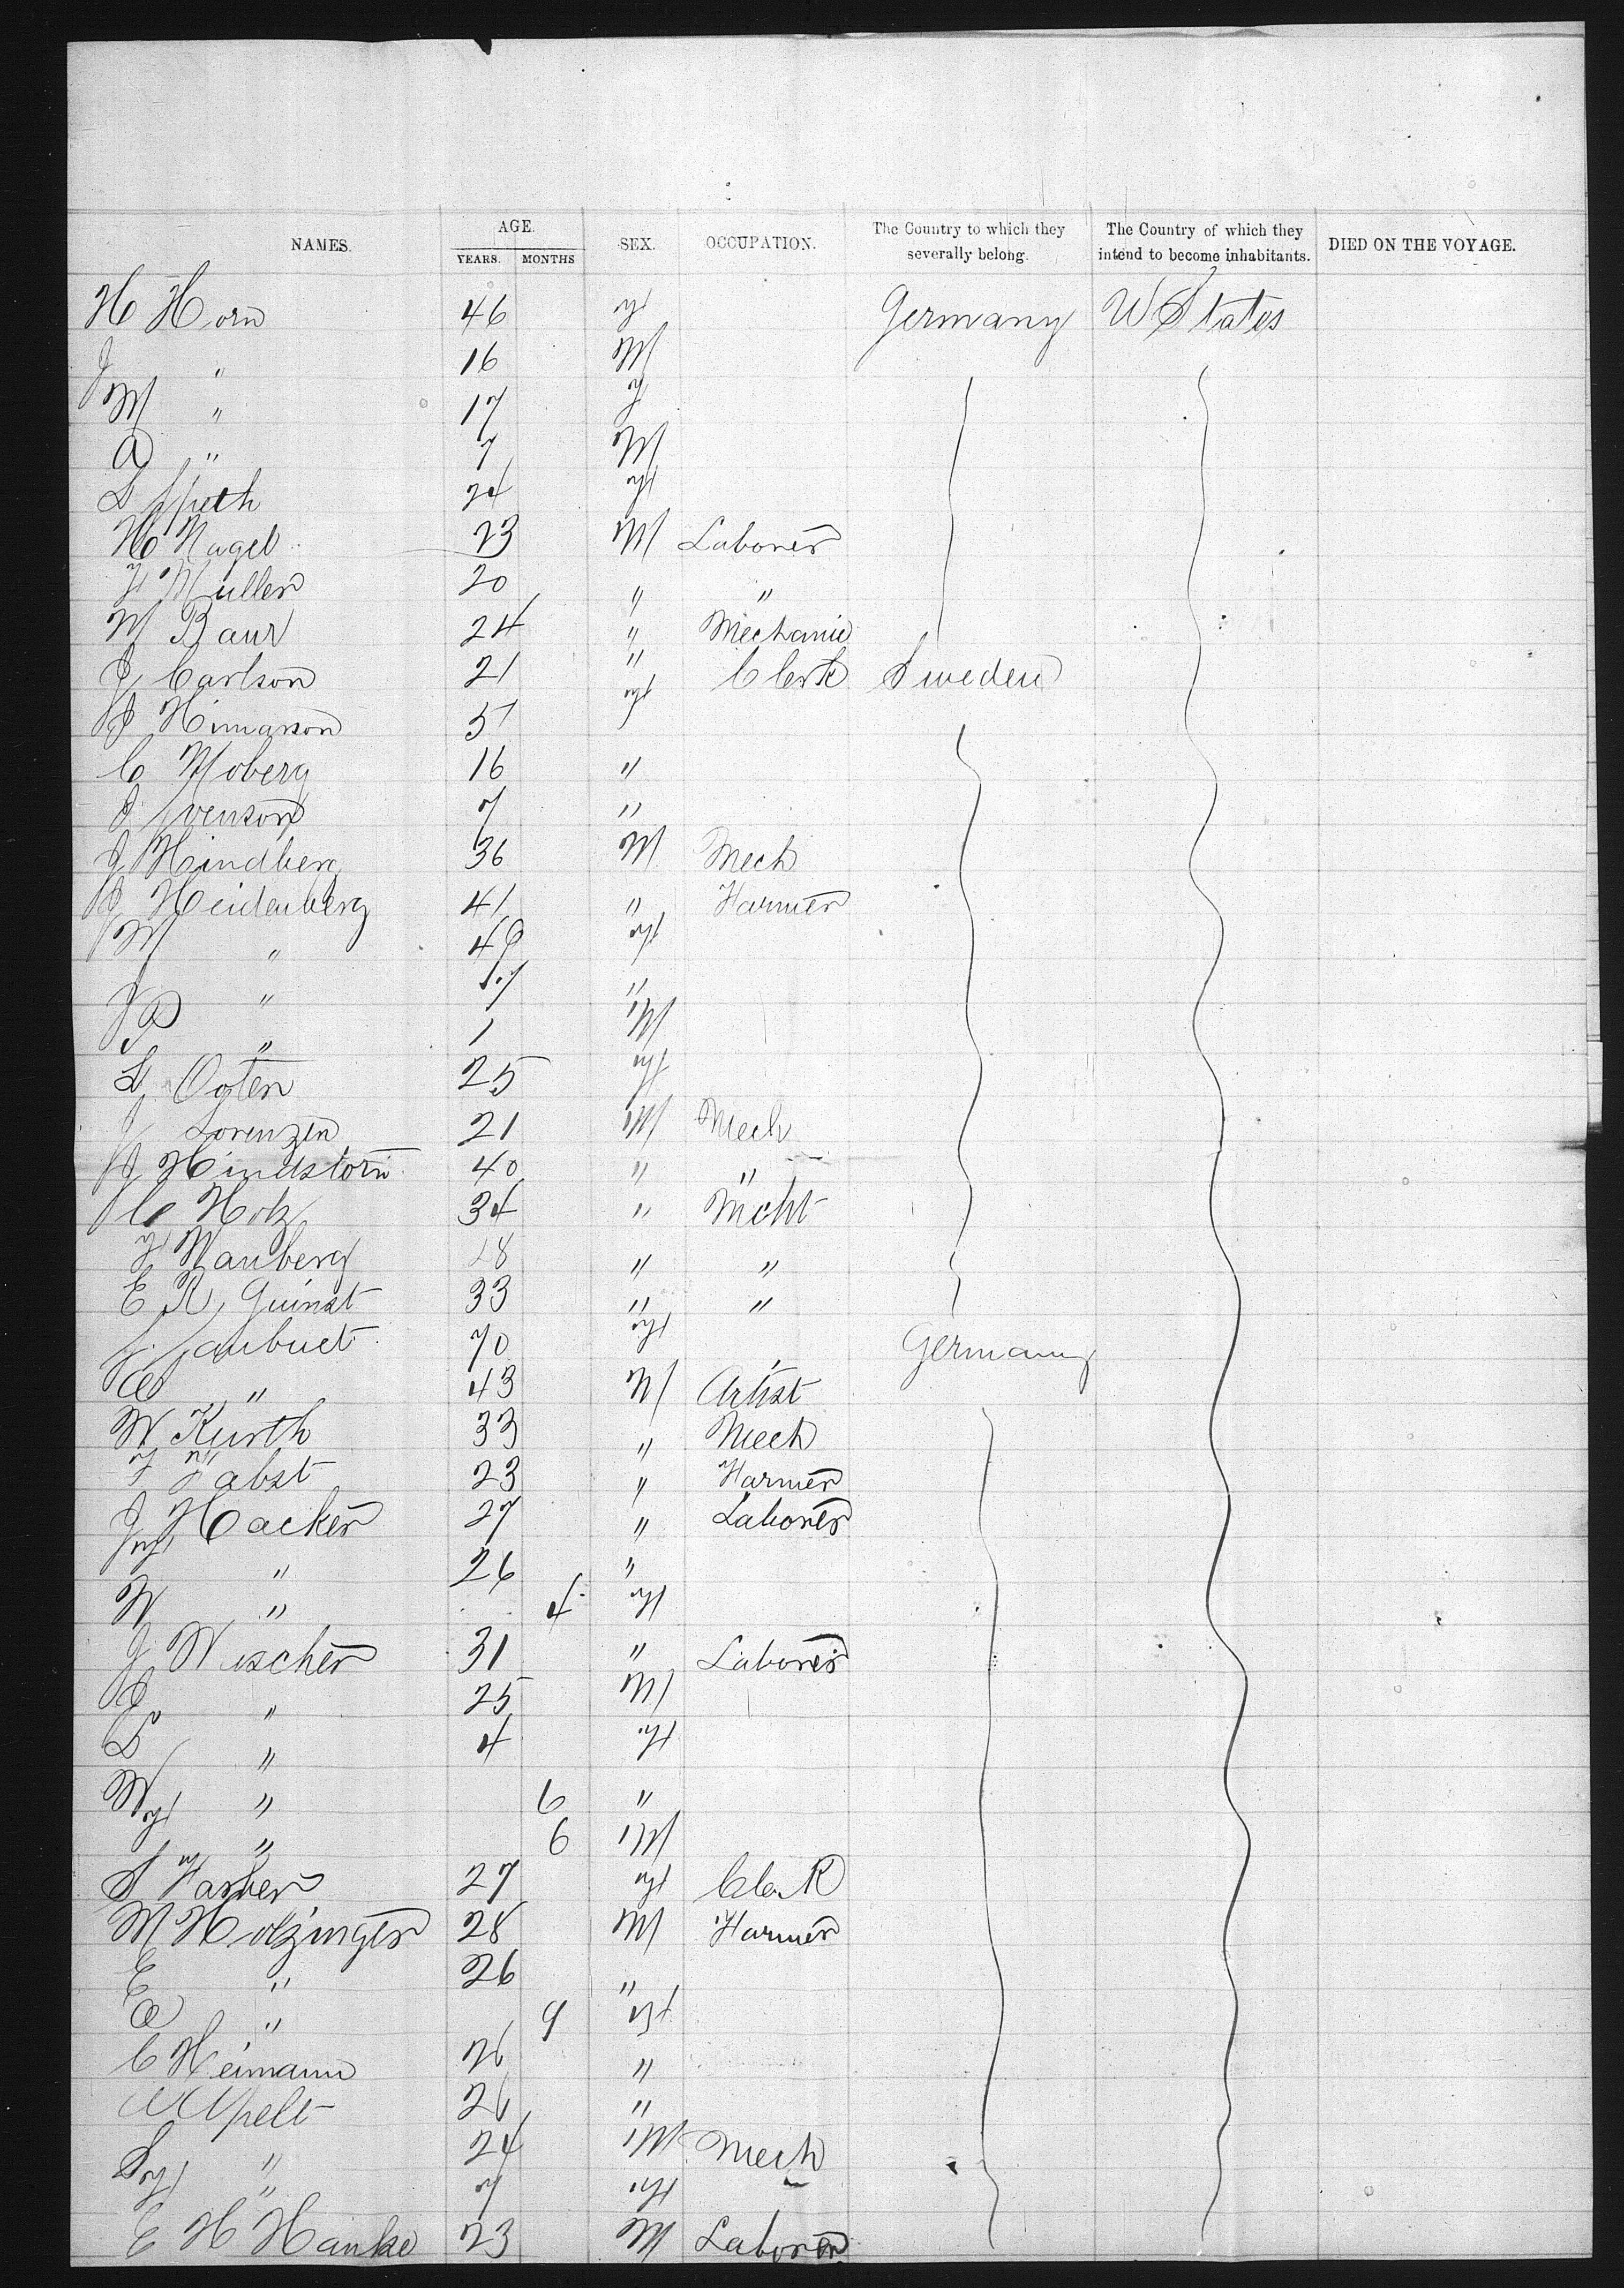 NAMES. AGE. YEARS. MONTHS SEX. OCCUPATION. The Country to which they severally belong. The Country of which they intend to become inhabitants. DIED ON THE VOYAGE.
H Horn 46 F Germany U States
J " 16 M
M " 17 F
A " 7 M
L Speth 24 F
H Nagel 23 M Laborer
F Muller 20 " "
M Baur 24 " Mechanic
J Carlson 21 " Clerk Sweden
51 F
C Moberg 16 "
J Svenson 7 "
J Hindberg 36 M Mech
J Heidenberg 41 " Farmer
M " 49 F
J " 17 "
P " 1 M
L Ogten 25 F
J Lorenzen 21 M Mech
J Hindstorn 40 " "
C Holz 34 " Mcht
F Wanberg 28 " "
E R Quinst 33 " "
70 F Germany
A " 43 M Artist
W Kurth 33 " Mech
F Pabst 23 " Farmer
J Hacker 27 " Laborer
" 26 "
W " 4 F
J Wischer 31 " Laborer
J " 25 M
D " 4 F
W " 6 "
F " 6 M
S Farber 27 F Clerk
M Holzinger 28 M Farmer
E " 26 "
A " 9 F
C Heimann 26 "
A Apelt 26 "
S " 24 M Mech
F " 7 F
E H Hanke 23 M Laborer